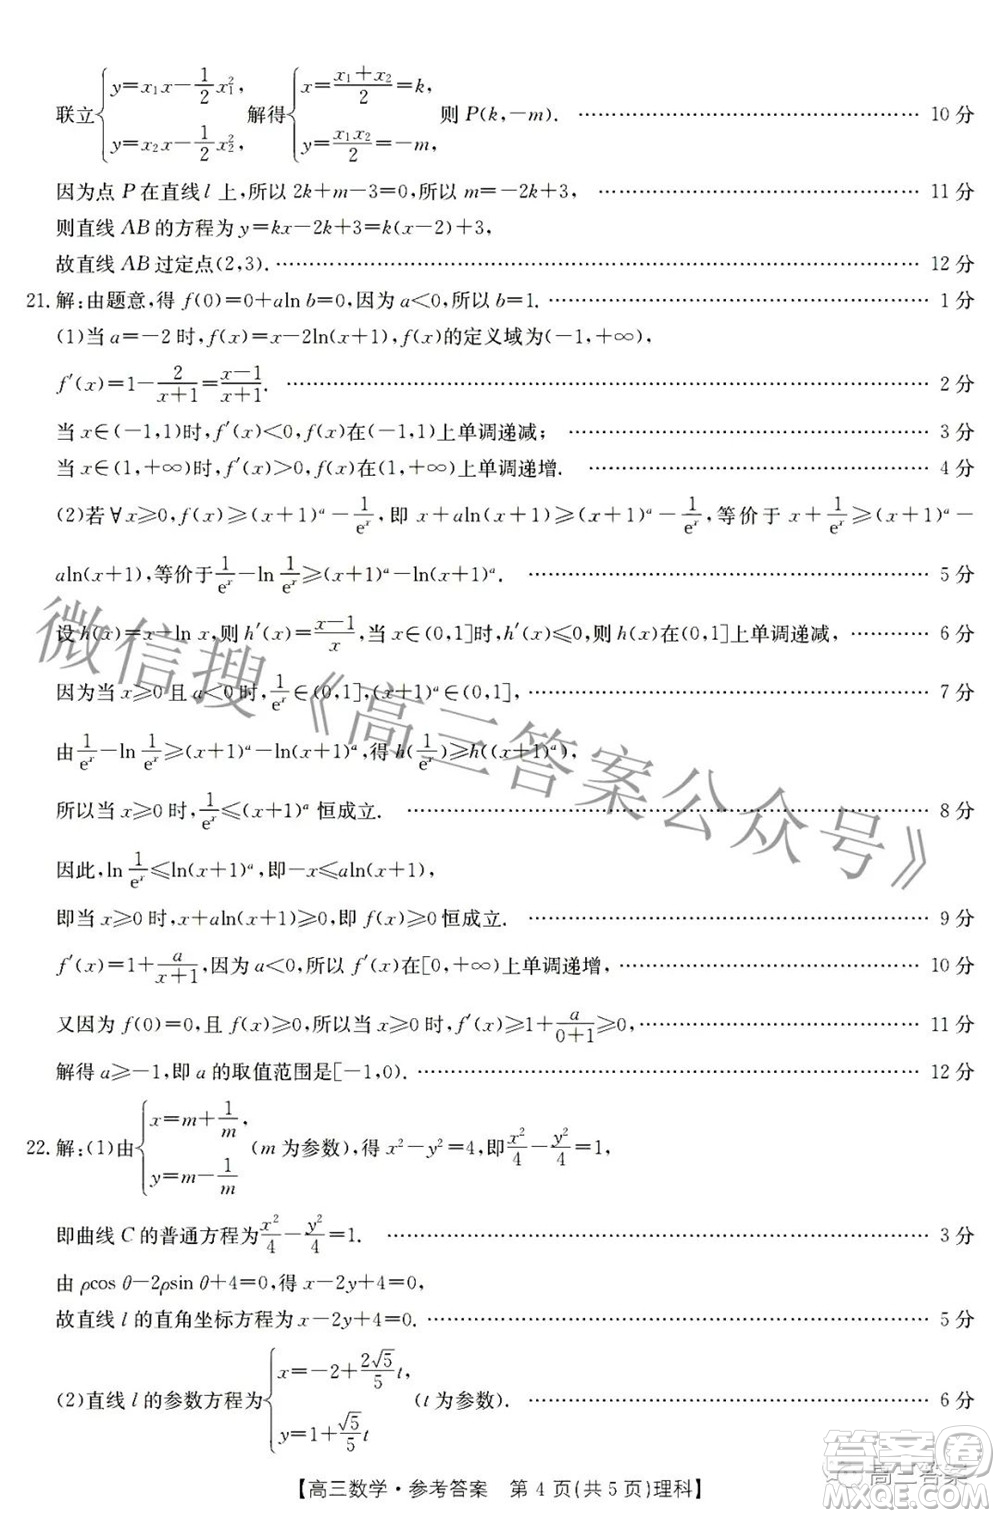 联立{y=x₁x-1/2 x₁², y=x₂x-1/2 x₂² 解得{x=(x₁+x₂)/2=k, y=x₁x₂/2=-m, 则 P(k,-m). …… 10 分
因为点 P 在直线 l 上,所以 2k+m-3=0,所以 m=-2k+3, …… 11 分
则直线 AB 的方程为 y=kx-2k+3=k(x-2)+3,
故直线 AB 过定点(2,3). …… 12 分
21. 解:由题意,得 f(0)=0+aln b=0,因为 a<0,所以 b=1. …… 1 分
(1)当 a=-2 时,f(x)=x-2ln(x+1),f(x)的定义域为(-1,+∞),
f′(x)=1-2/(x+1)=(x-1)/(x+1). …… 2 分
当 x∈(-1,1)时,f′(x)<0,f(x)在(-1,1)上单调递减; …… 3 分
当 x∈(1,+∞)时,f′(x)>0,f(x)在(1,+∞)上单调递增. …… 4 分
(2)若∀x≥0,f(x)≥(x+1)ᵃ-1/eˣ,即 x+aln(x+1)≥(x+1)ᵃ-1/eˣ,等价于 x+1/eˣ≥(x+1)ᵃ-
aln(x+1),等价于1/eˣ-ln 1/eˣ≥(x+1)ᵃ-ln(x+1)ᵃ. …… 5 分
设 h(x)=x-ln x,则 h′(x)=(x-1)/x,当 x∈(0,1]时,h′(x)≤0,则 h(x)在(0,1]上单调递减, …… 6 分
因为 x≥0 且 a<0时,1/eˣ∈(0,1],(x+1)ᵃ∈(0,1], …… 7 分
由1/eˣ-ln 1/eˣ≥(x+1)ᵃ-ln(x+1)ᵃ,得 h(1/eˣ)≥h((x+1)ᵃ),
所以当 x≥0 时,1/eˣ≤(x+1)ᵃ 恒成立. …… 8 分
因此,ln 1/eˣ≤ln(x+1)ᵃ,即-x≤aln(x+1),
即当 x≥0 时,x+aln(x+1)≥0,即 f(x)≥0 恒成立. …… 9 分
f′(x)=1+a/(x+1),因为 a<0,所以 f′(x)在[0,+∞)上单调递增, …… 10 分
又因为 f(0)=0,且 f(x)≥0,所以当 x≥0 时,f′(x)≥1+a/(0+1)≥0, …… 11 分
解得 a≥-1,即 a 的取值范围是[-1,0). …… 12 分
22. 解:(1)由{x=m+1/m, y=m-1/m (m 为参数),得 x²-y²=4,即x²/4-y²/4=1,
即曲线 C 的普通方程为x²/4-y²/4=1. …… 3 分
由 ρcos θ-2ρsin θ+4=0,得 x-2y+4=0,
故直线 l 的直角坐标方程为 x-2y+4=0. …… 5 分
(2)直线 l 的参数方程为{x=-2+2√5/5 t, y=1+√5/5 t (t 为参数). …… 6 分
【高三数学·参考答案 第 4 页(共 5 页)理科】
微信搜《高三答案公众号》
高三答案
答案圈
MXQE.COM